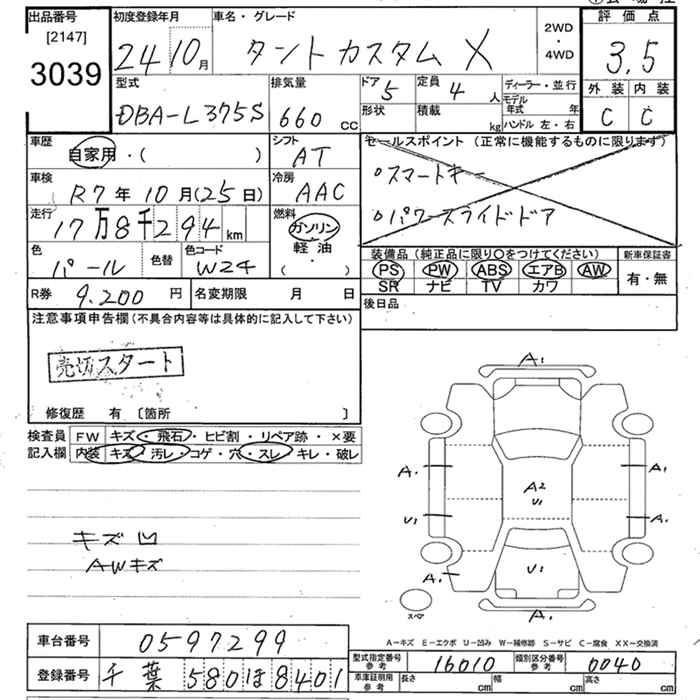 出品番号 初度登録年月 車名・グレード 2WD・4WD 評価点
[2147]
3039 24 10月 タント カスタム X 3.5
型式 排気量 ドア 5 定員 4人 ディーラー・並行 外装 内装
DBA-L375S 660cc 形状 積載 kg モデル年式 年 C C
ハンドル 左・右
車歴 自家用・( ) シフト AT セールスポイント (正常に機能するものに限ります)
車検 R7年10月(25日) 冷房 AAC ○スマートキー
走行 17万8千294km 燃料 ガソリン 軽油 ( ・ ) ○パワースライドドア
色 パール 色替 色コード W24 装備品 (純正品に限り○をつけてください) 新車保証書
PS PW ABS エアB AW 有・無
SR ナビ TV カワ
R券 9.200円 名変期限 月 日 後日品
注意事項申告欄 (不具合内容等は具体的に記入して下さい)
売切スタート
修復歴 有 〔箇所 〕
検査員 FW キズ・飛石・ヒビ割・リペア跡・×要
記入欄 内装 キズ・汚レ・コゲ・穴・スレ・キレ・破レ
キズ凹
AWキズ
A1
A1 A1
A2
U1
U1 A1
A1 U1
A1
スペア
A−キズ E−エクボ U−凹み W−補修跡 S−サビ C−腐食 XX−交換済
車台番号 0597299
登録番号 千葉 580 ほ 8401
型式指定番号 参考 16010 類別区分番号 参考 0040
車庫証明用 参考 長さ cm 幅 cm 高さ cm